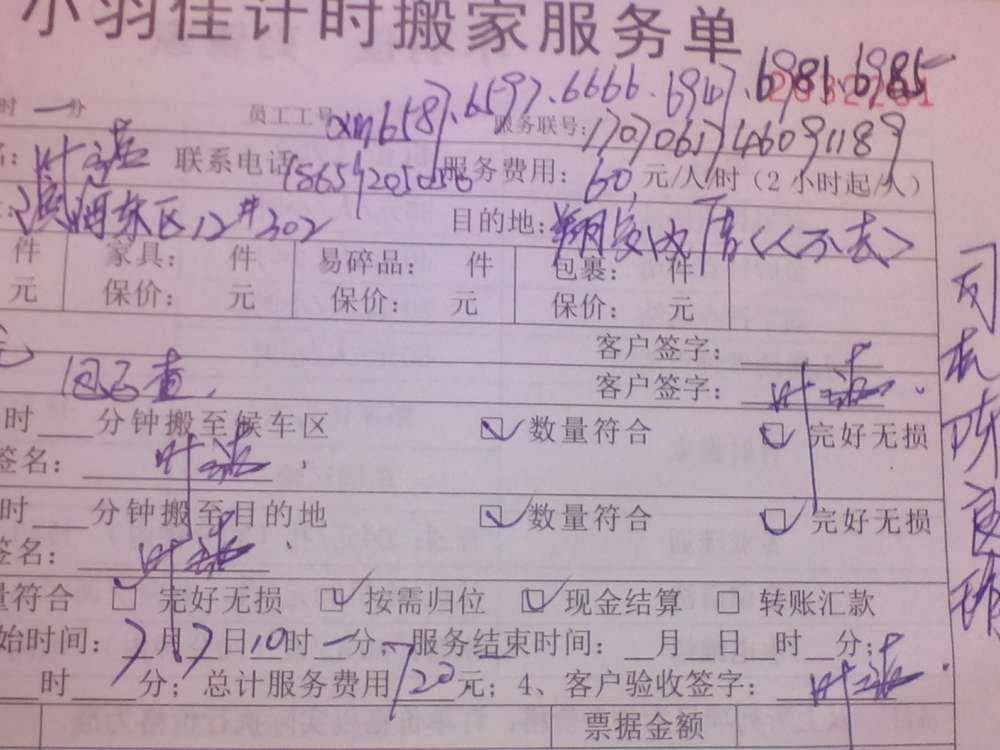 小羽佳计时搬家服务单
时 一 分 员工工号 xm6587.6597.6666.6907.6981.6985
服务联号: 170706174609 1189
联系电话 服务费用: 60 元/人/时（2小时起/人）
东区12#302 目的地: 翔安 <人不去>
件 家具: 件 易碎品: 件 包裹: 件
元 保价: 元 保价: 元 保价: 元
客户签字:
客户签字: 叶
时 分钟搬至候车区 数量符合 完好无损
签名: 叶
时 分钟搬至目的地 数量符合 完好无损
签名: 叶
量符合 完好无损 按需归位 现金结算 转账汇款
始时间: 7月7日10时一分; 服务结束时间: 月 日 时 分;
时 分; 总计服务费用 720 元; 4、客户验收签字: 叶
票据金额
司机陈良